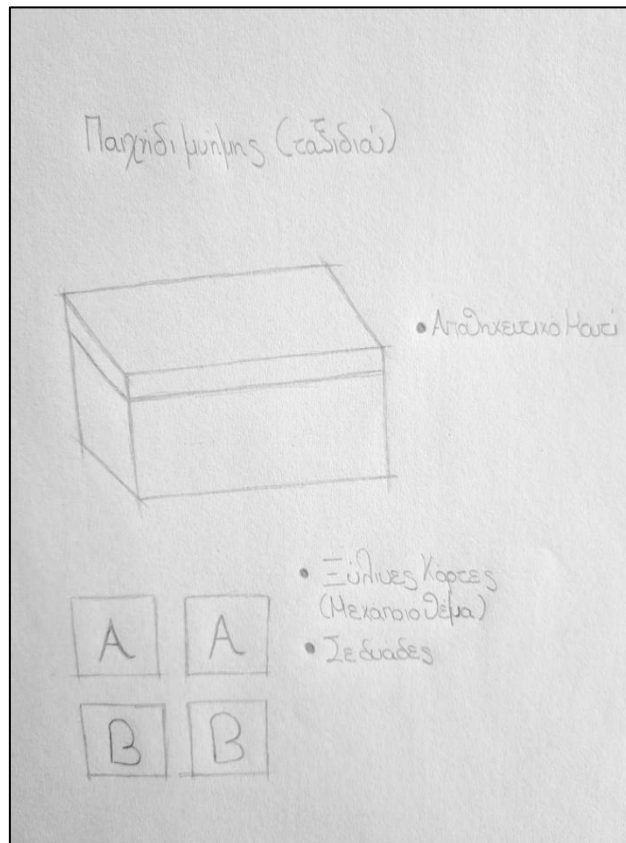 Παιχνίδι μνήμης (ταξιδιού)
• Αποθηκευτικο κουτί
• Ξύλινες κάρτες
(Με καποιο θέμα)
• Σε δυάδες
A A
B B